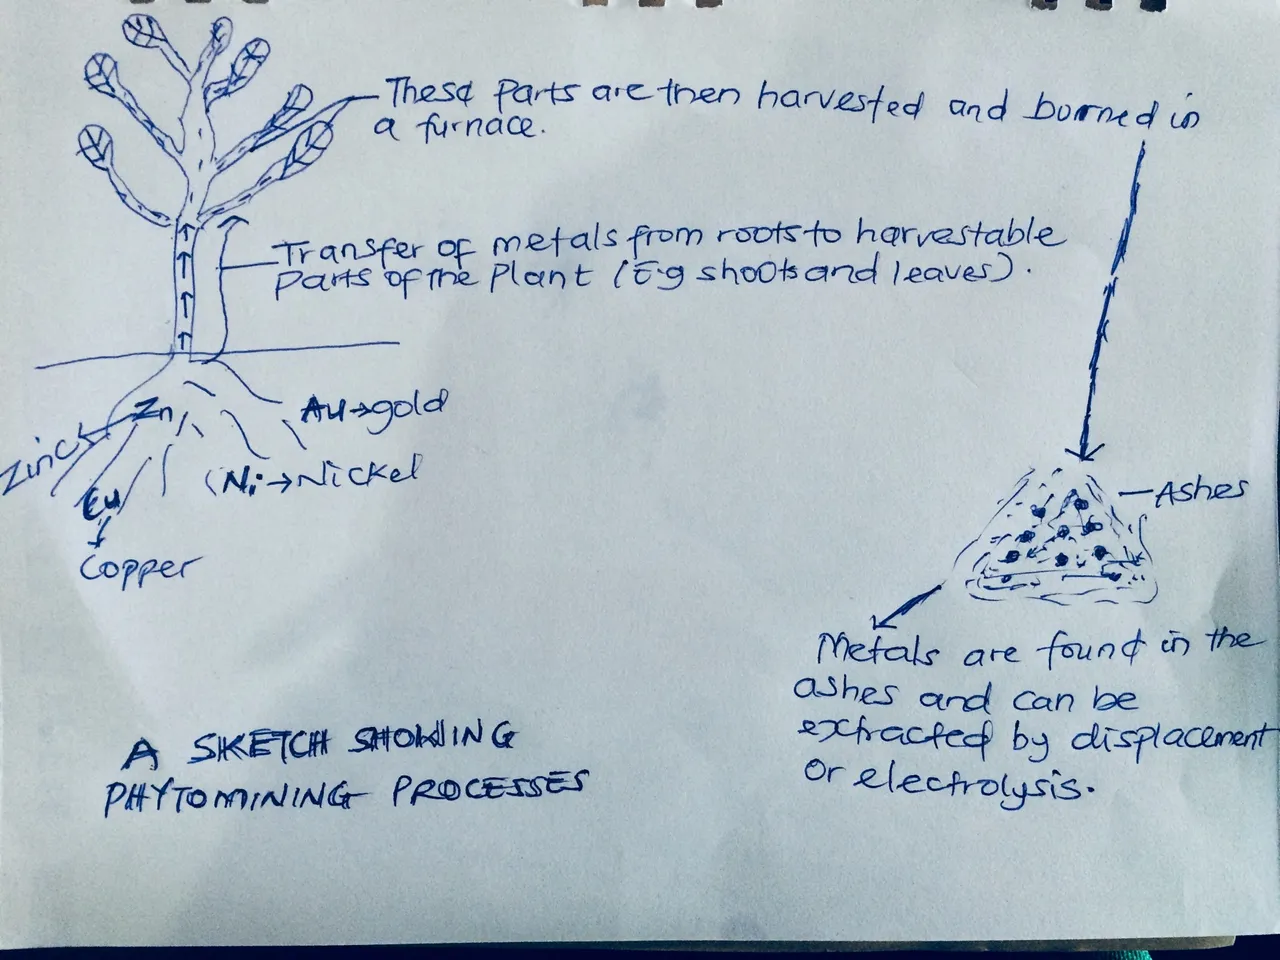 These Parts are then harvested and borned in
a furnace.
Transfer of metals from roots to harvestable
Parts of the Plant (E.g shoots and leaves).
Zn
Zinc
Au→gold
(Ni→Nickel
Cu
Copper
Ashes
Metals are found in the
ashes and can be
extracted by displacement
or electrolysis.
A SKETCH SHOWING
PHYTOMINING PROCESSES